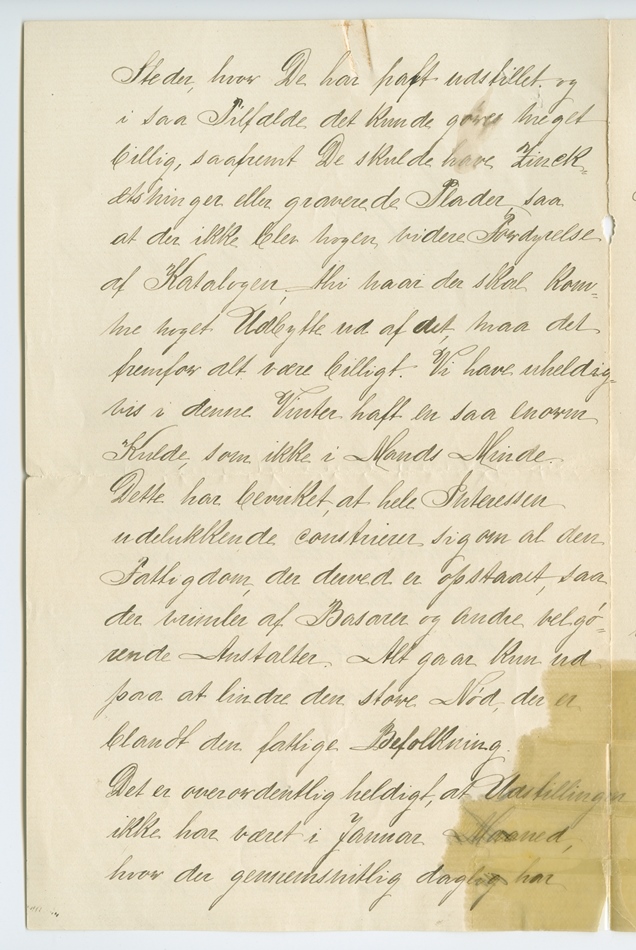 Steder, hvor De har haft udstillet og
i saa Tilfælde det kunde gøres meget
billig, saafremt De skulde have Zinck-
ætsninger eller graverede Plader, saa
at der ikke blev nogen videre Fordyrelse
af Katalogen, thi naar der skal kom-
me noget Udbytte ud af det, maa det
fremfor alt være billigt. Vi have uheldig-
vis i denne Vinter haft en saa enorm
Kulde, som ikke i Mands Minde.
Dette har bevirket, at hele Interessen
udelukkende sig om al den
Fattigdom, der derved er opstaaet, saa
der vrimler af Basarer og andre velgø-
rende Anstalter. Alt gaar kun ud
paa at lindre den store Nød, der er
blandt den fattige Befolkning.
Det er overordentlig heldigt, at Udstillingen
ikke har været i Januar Maaned,
hvor der gennemsnitlig daglig har